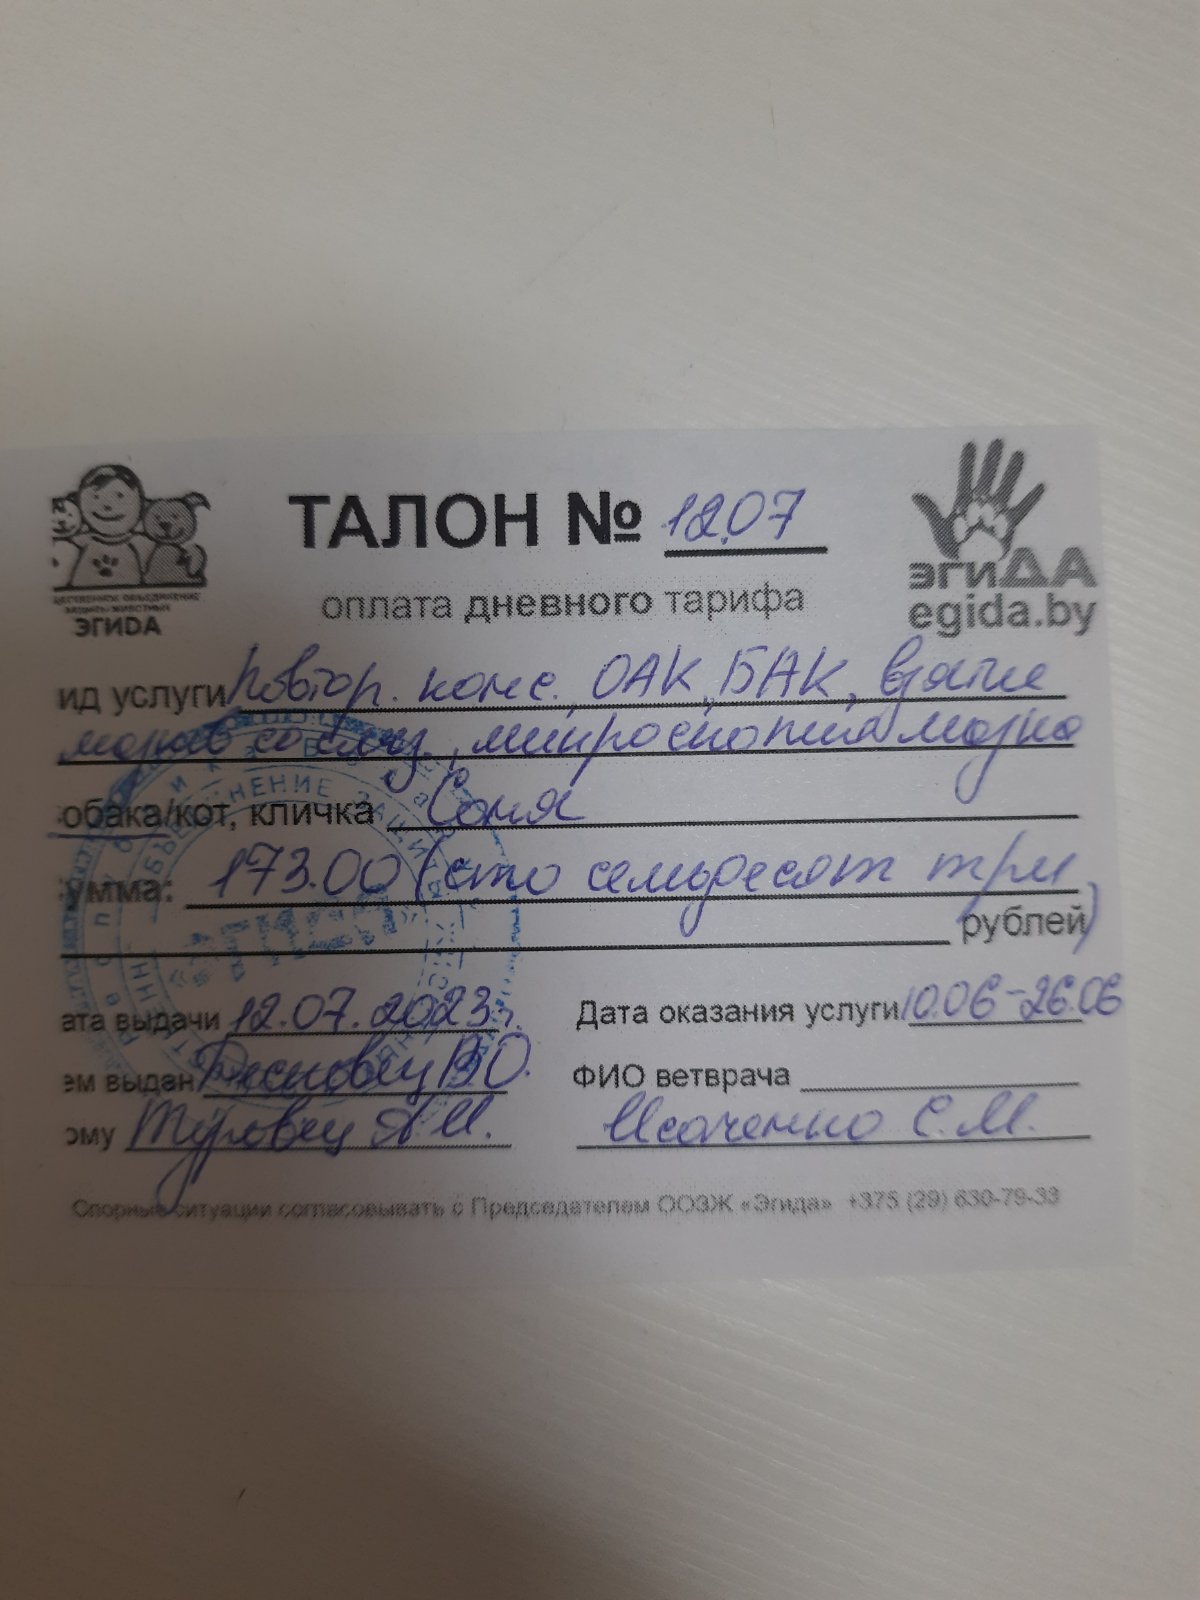 ТАЛОН № 12.07
оплата дневного тарифа
ЭГИДА
эгиДА
egida.by
ид услуги Повтор. конс., ОАК, БАК, взятие
мазков со слиз., микроскопия мазка
обака/кот, кличка Соня
умма: 173.00 (сто семьдесят три
рублей)
ата выдачи 12.07.2023г. Дата оказания услуги 10.06-26.06
ем выдан В.О. ФИО ветврача
ому Туровец А.И. Исаченко С.М.
Спорные ситуации согласовывать с Председателем ООЗЖ «Эгида» +375 (29) 630-79-33